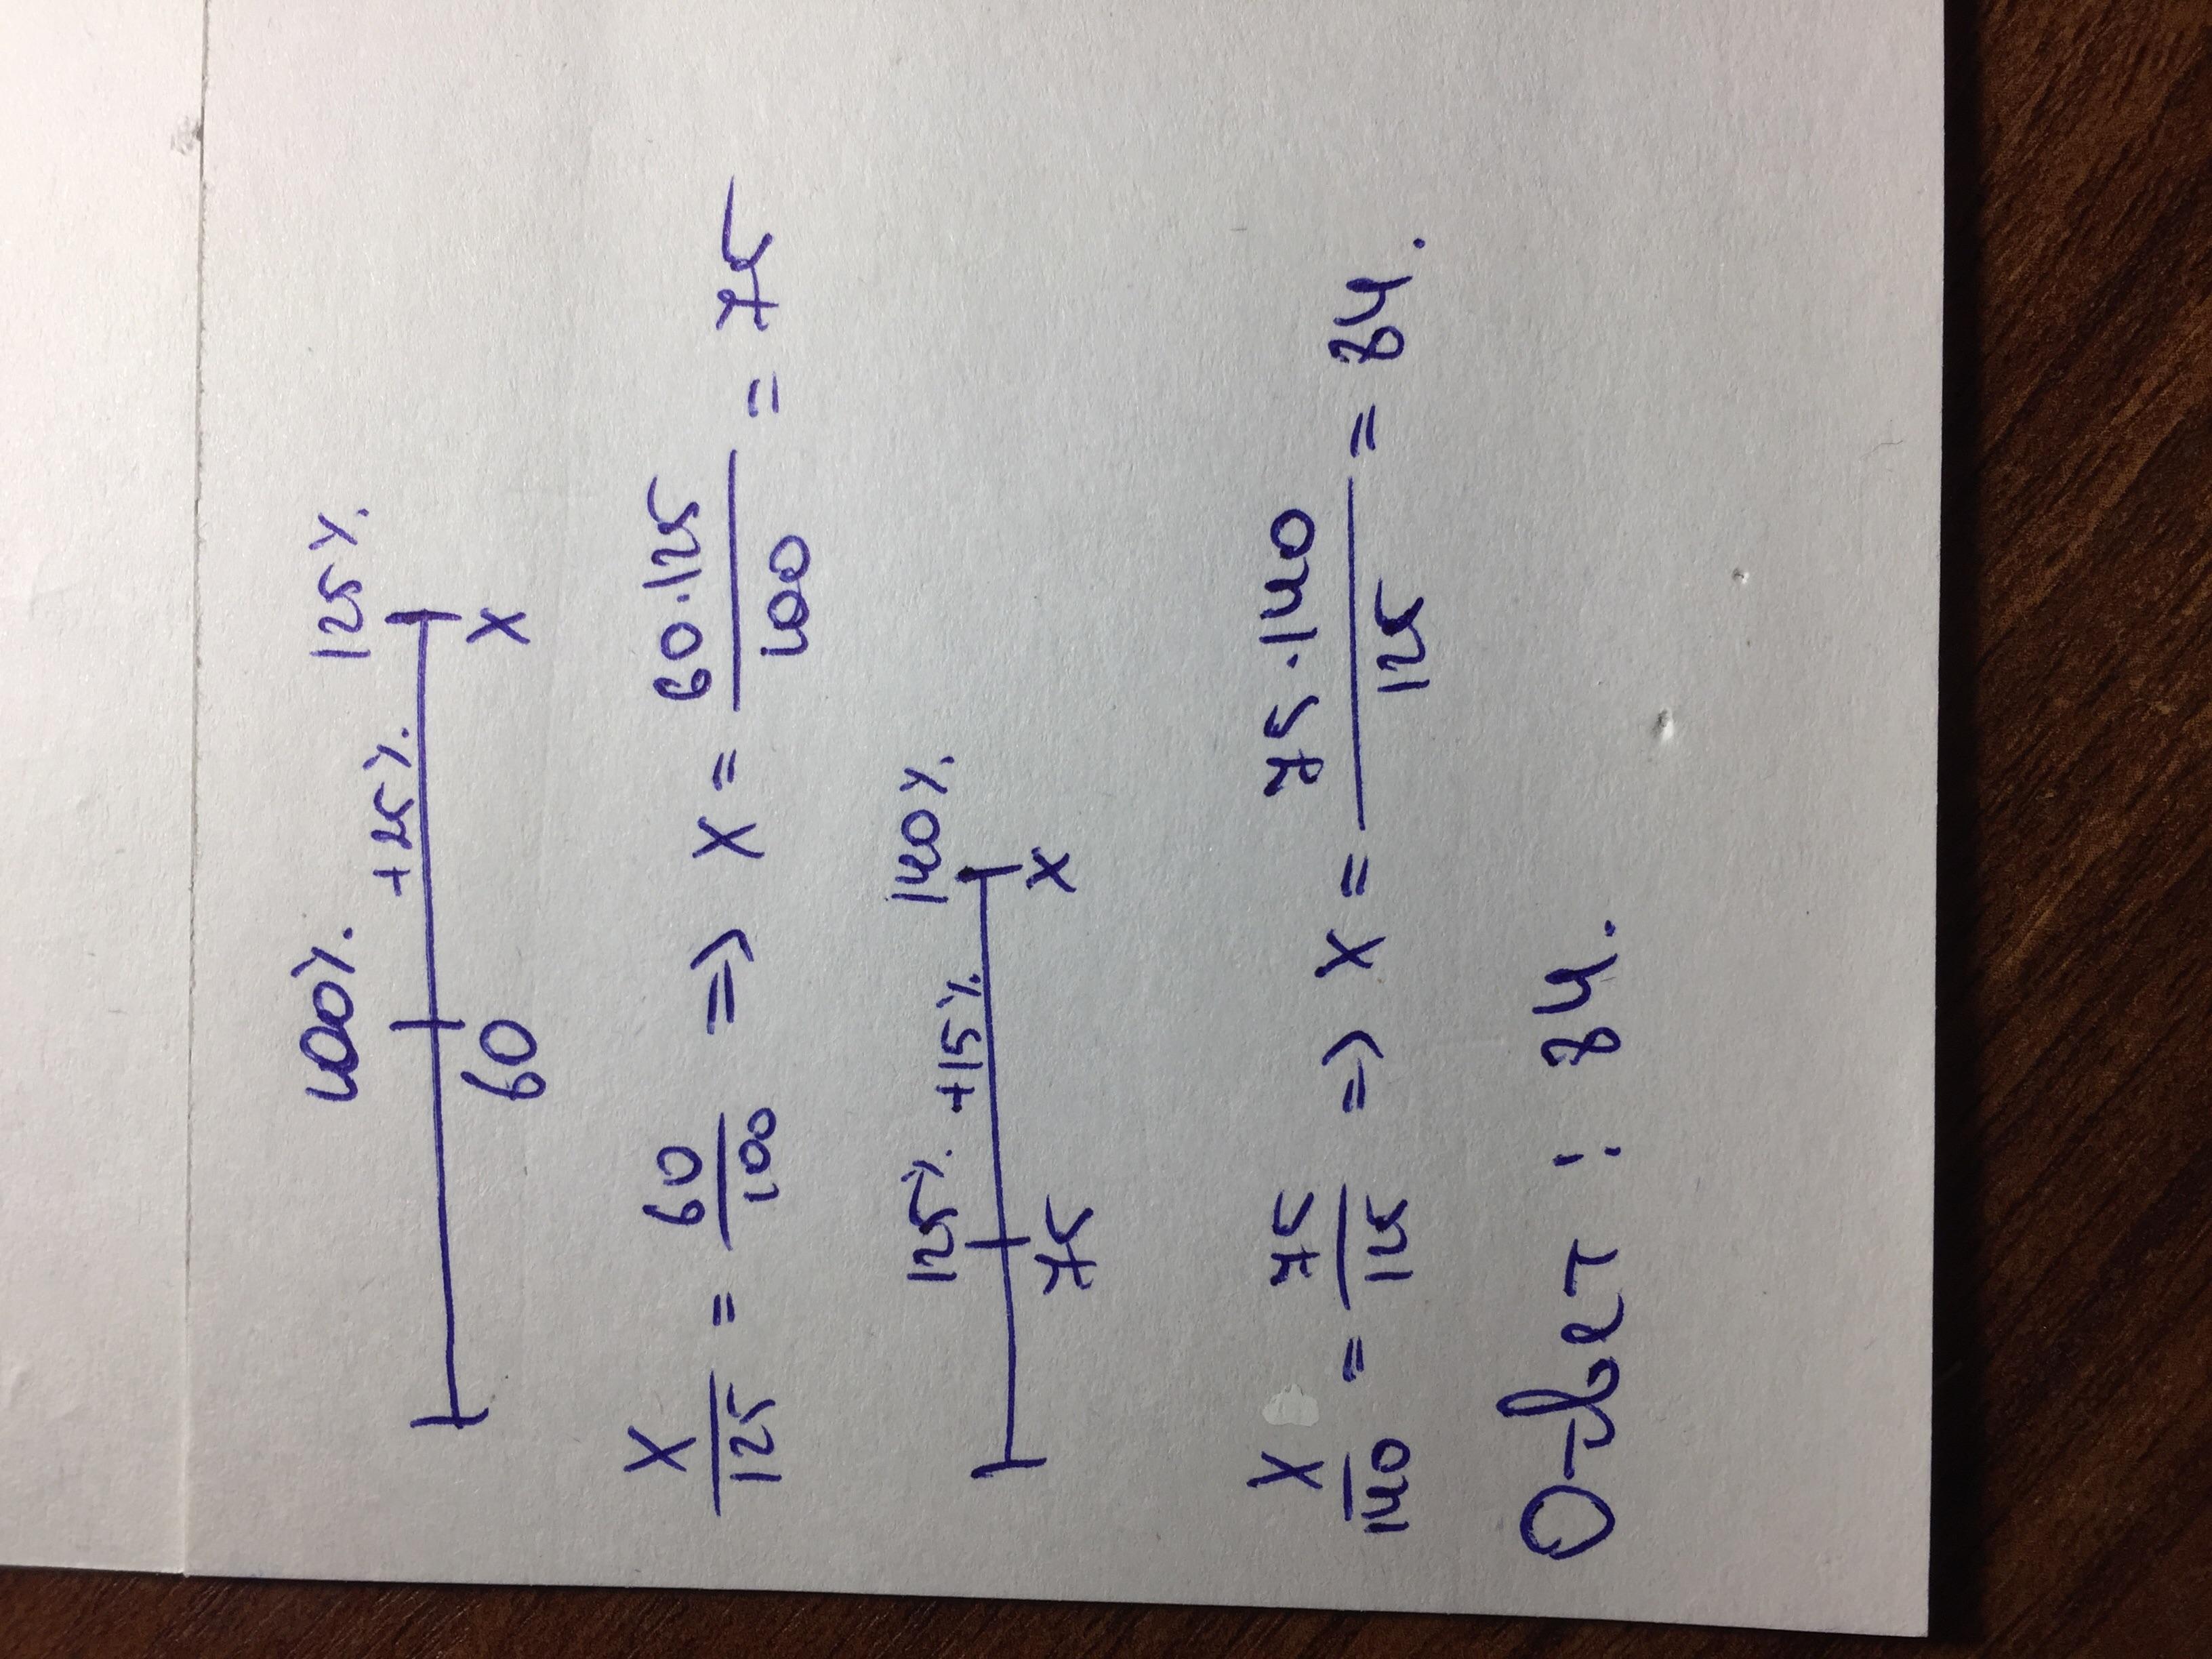 100% +25% 125%
60 x
x/125 = 60/100 => x = 60·125/100 = 75
125% +15% 140%
75 x
x/140 = 75/125 => x = 75·140/125 = 84.
О-вет : 84.